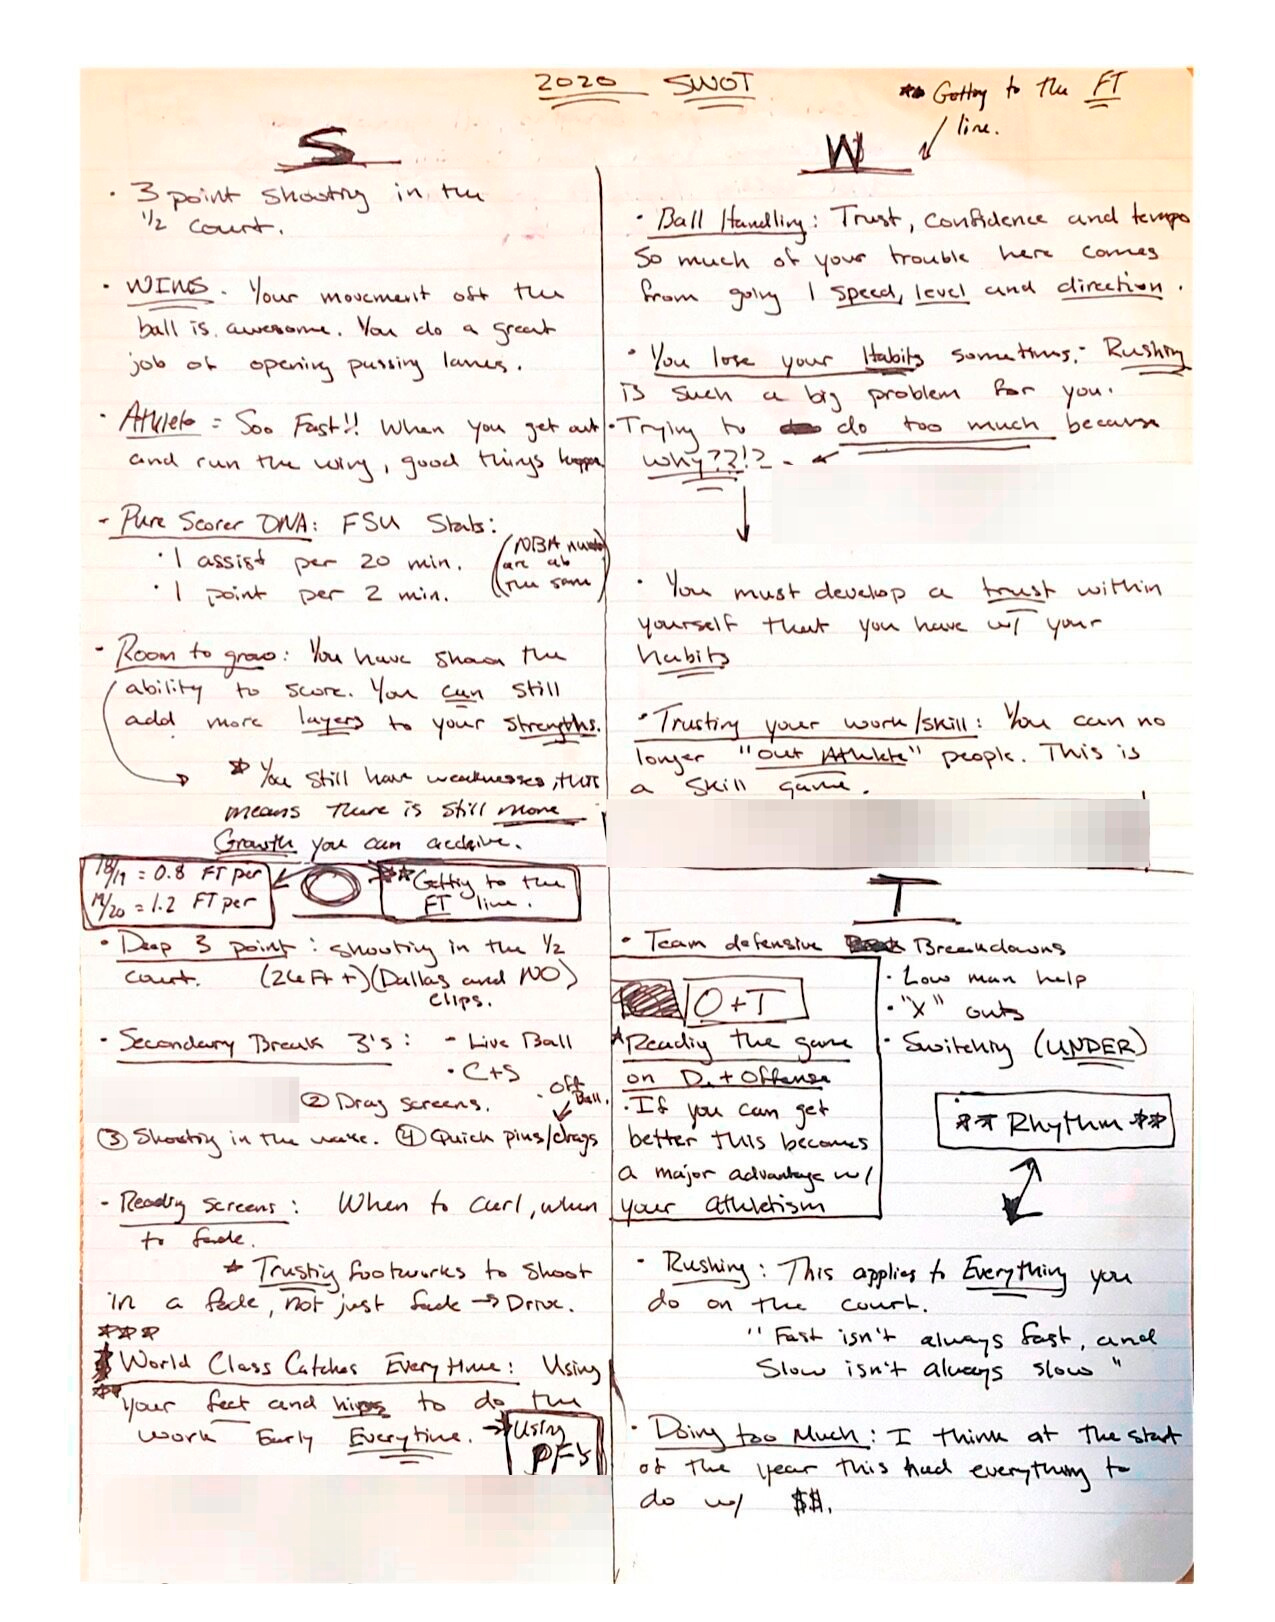 2020 SWOT
** Getting to the FT
line.
S
· 3 point shooting in the
1/2 court.
· WINS. Your movement off the
ball is awesome. You do a great
job of opening passing lanes.
· Athlete = Soo Fast!! When you get out
and run the wing, good things happen
- Pure Scorer DNA: FSU Stats:
· 1 assist per 20 min.
· 1 point per 2 min.
(NBA
are
the same)
- Room to grow: You have shown the
ability to score. You can still
add more layers to your strengths.
* You still have weaknesses, this
means there is still more
Growth you can achieve.
W
· Ball Handling: Trust, confidence and tempo
So much of your trouble here comes
from going 1 speed, level and direction.
· You lose your Habits sometimes. Rushing
is such a big problem for you.
· Trying to do too much because
why??!?
· You must develop a trust within
yourself that you have w/ your
habits
· Trusting your work/skill: You can no
longer "out Athlete" people. This is
a skill game.
18/19 = 0.8 FT per
19/20 = 1.2 FT per
O
** Getting to the
FT line.
· Deep 3 point: shooting in the 1/2
court. (26 Ft +) (Dallas and NO)
clips.
· Secondary Break 3's: - Live Ball
· C+S
② Drag screens. · Off
Ball.
③ Shooting in the wake. ④ Quick pins/drags
- Reading screens: When to curl, when
to fade.
* Trusting footworks to shoot
in a fade, not just fade → Drive.
***
World Class Catches Everytime: Using
** your feet and hips to do the
work Early Everytime. → Using
PF's
T
· Team defensive Breakdowns
· Low man help
· "X" outs
· Switching (UNDER)
O+T
* Reading the game
on D. + Offense
· If you can get
better this becomes
a major advantage w/
your athletism
** Rhythm **
· Rushing: This applies to Everything you
do on the court.
"Fast isn't always fast, and
Slow isn't always slow"
· Doing too Much: I think at the start
of the year this had everything to
do w/ $$.